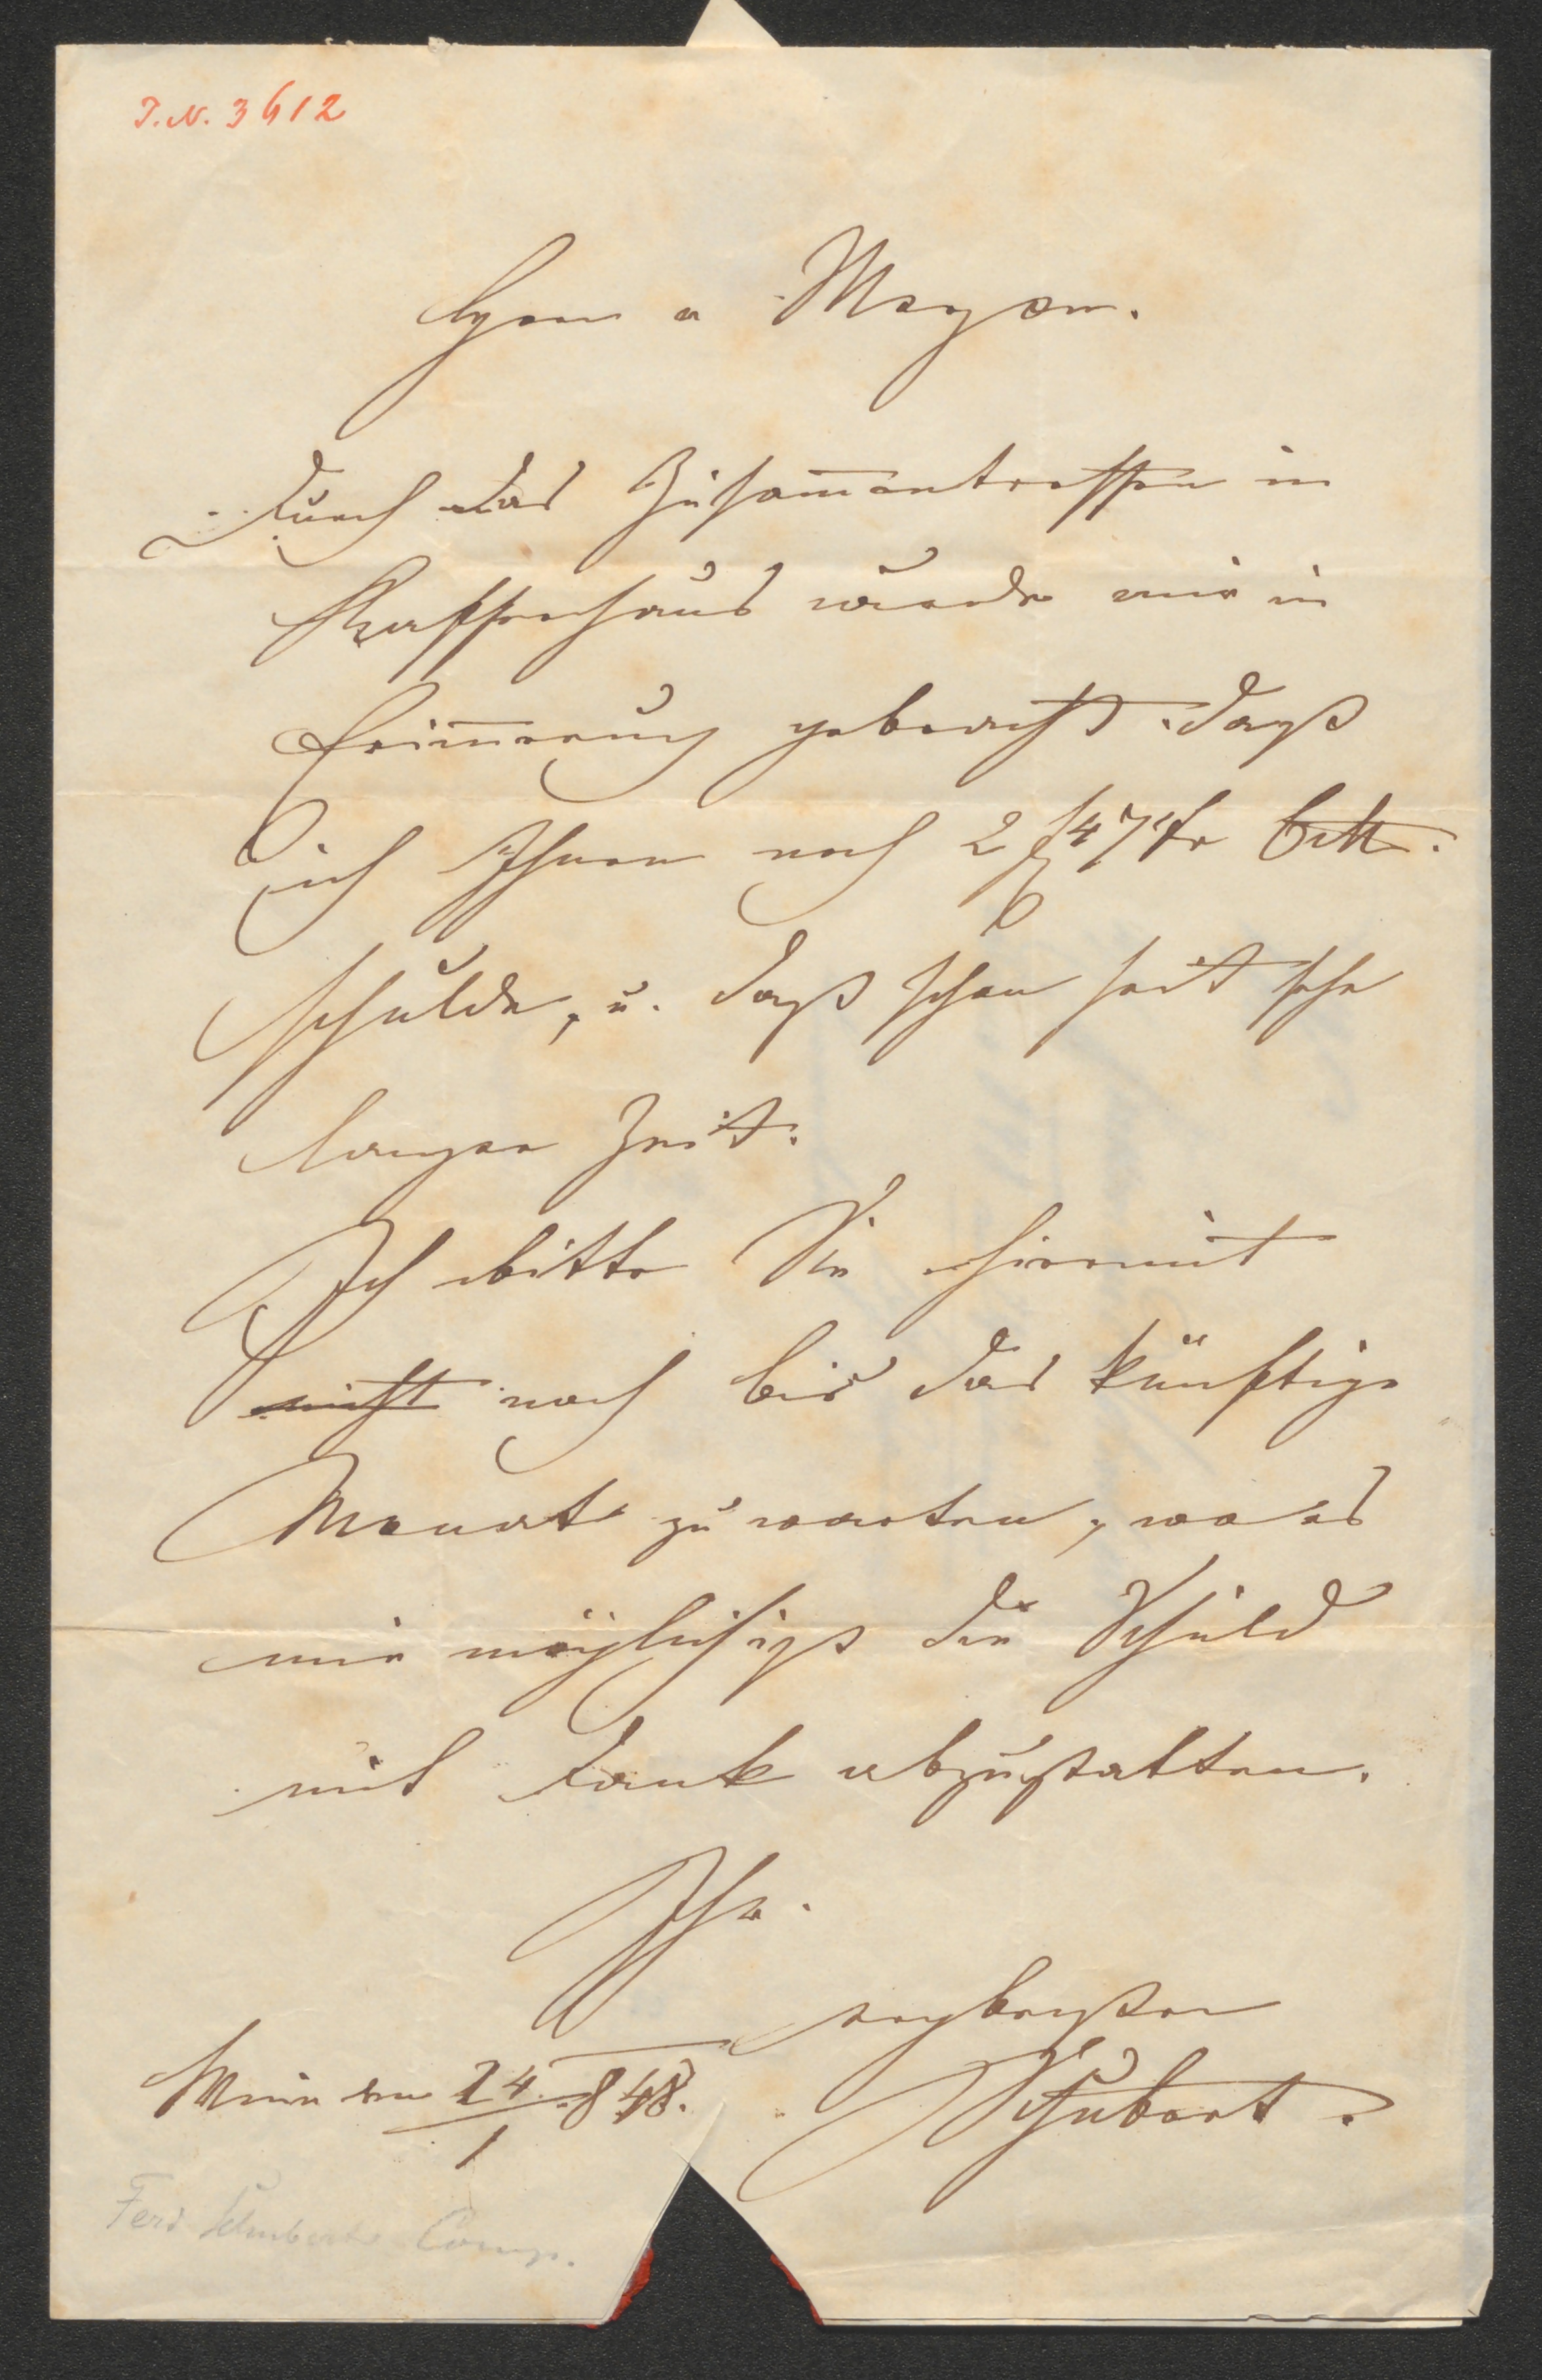 I.N. 3612
Herr v Mayer.
Durch das Zusam̅entreffen in
Kaffeehaus wurde mir in
Erin̅erung gebracht, daß
ich Ihnen noch 2 f 47 kr
schulde, u. daß schon seit sehr
langer Zeit.
Ich bitte Sie hiermit
nicht noch bis das künftige
Monat zu warten, wo es
mir möglich ist die Schuld
mit Dank abzustatten.
Ihr
ergebenster
Schubert.
Wien den 24/1 848.
Ferd Schubert Comp.